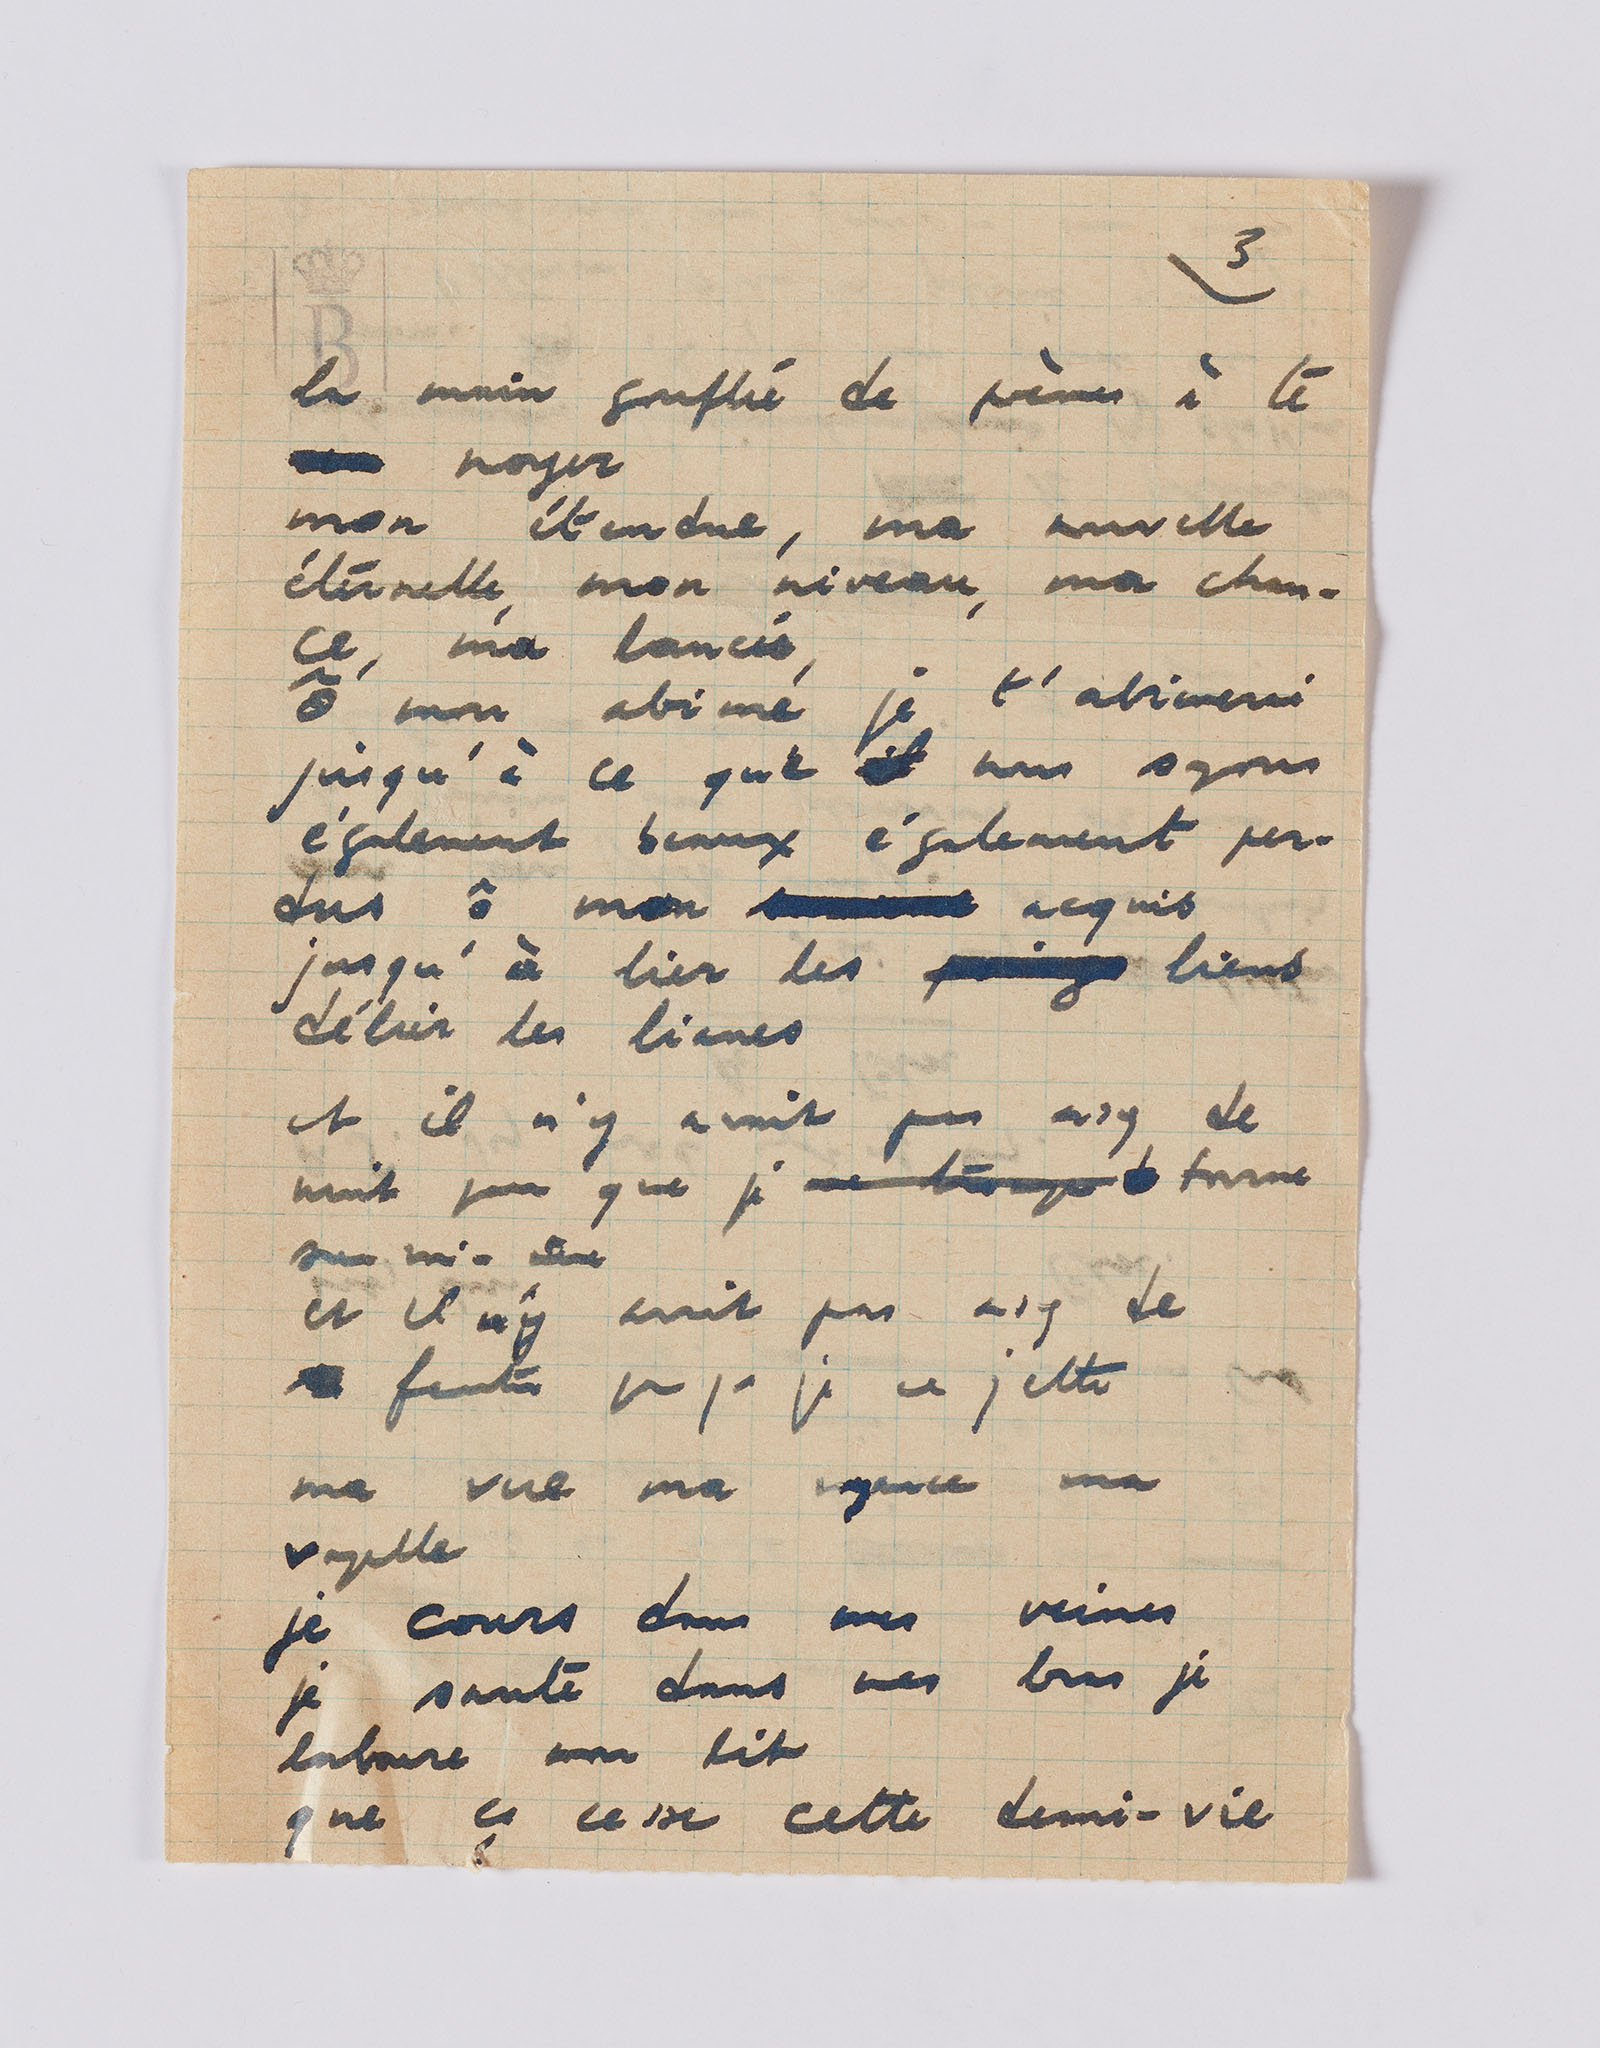 3
B
la main gonflée de poèmes à te
noyer
mon étendue, ma nouvelle
éternelle, mon niveau, ma chan-
ce, ma lancée,
ô mon abimé je t'abimerai
jusqu'à ce que nous soyons
également beaux également per-
dus ô mon acquis
jusqu'à lier les liens
délier les lianes
et il n'y avait pas assez de
nuit pour que je tourne
et il n'y avait pas assez de
je me jette
ma vue ma voyance ma
voyelle
je cours dans mes veines
je saute dans mes bras je
laboure mon lit
que ça cesse cette demi-vie